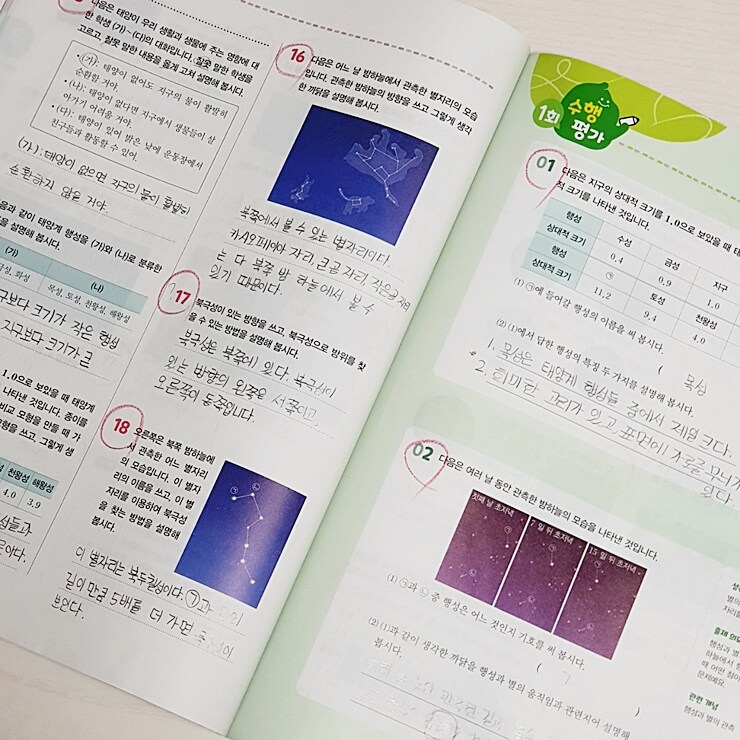 다음은 태양이 우리 생활과 생물에 주는 영향에 대
한 학생 (가)~(다)의 대화입니다. 잘못 말한 학생을
고르고, 잘못 말한 내용을 옳게 고쳐 설명해 봅시다.
• (가): 태양이 없어도 지구의 물이 활발히
순환할 거야.
• (나): 태양이 없다면 지구에서 생물들이 살
아가기 어려울 거야.
• (다): 태양이 있어 밝은 낮에 운동장에서
친구들과 활동할 수 있어.
(가): 태양이 없으면 지구의 물이 활발히
순환하지 않을 거야.
음과 같이 태양계 행성을 (가)와 (나)로 분류한
해 봅시다.
(가) (나)
금성, 화성 목성, 토성, 천왕성, 해왕성
구보다 크기가 작은 행성
지구보다 크기가 큰
1.0으로 보았을 때 태양계
나타낸 것입니다. 종이를
비교 모형을 만들 때 가
형을 쓰고, 그렇게 생
천왕성 해왕성
4.0 3.9
16
다음은 어느 날 밤하늘에서 관측한 별자리의 모습
입니다. 관측한 밤하늘의 방향을 쓰고, 그렇게 생각
한 까닭을 설명해 봅시다.
북쪽에서 볼 수 있는 별자리이다.
카시오피아아 자리, 큰곰 자리, 작은곰 자리
는 다 북쪽 밤 하늘에서 볼 수
있기 때문이다.
17
북극성이 있는 방향을 쓰고, 북극성으로 방위를 찾
을 수 있는 방법을 설명해 봅시다.
북극성은 북쪽에 있다. 북극성이
있는 방향의 왼쪽은 서쪽이고,
오른쪽이 동쪽입니다.
18
오른쪽은 북쪽 밤하늘에
서 관측한 어느 별자리
의 모습입니다. 이 별자
리의 이름을 쓰고, 이 별
자리를 이용하여 북극성
을 찾는 방법을 설명해
봅시다.
이 별자리는 북두칠성이다. ㉠과
길이 만큼 5배를 더 가면
보인다.
1회
수행
평가
01
다음은 지구의 상대적 크기를 1.0으로 보았을 때 태
적 크기를 나타낸 것입니다.
행성 수성 금성 지구
상대적 크기 0.4 0.9 1.0
행성 ㉠ 토성 천왕성
상대적 크기 11.2 9.4 4.0
(1) ㉠에 들어갈 행성의 이름을 써 봅시다.
( 목성
(2) (1)에서 답한 행성의 특징 두 가지를 설명해 봅시다.
1. 목성은 태양계 행성들 중에서 제일 크다.
2. 희미한 고리가 있고, 표면에 가로 무늬가
있다.
02
다음은 여러 날 동안 관측한 밤하늘의 모습을 나타낸 것입니다.
첫째 날 초저녁
7일 뒤 초저녁
15일 뒤 초저녁
(1) ㉠과 ㉡ 중 행성은 어느 것인지 기호를 써 봅시다.
(2) (1)과 같이 생각한 까닭을 행성과 별의 움직임과 관련지어 설명해
봅시다.
별의
자리를
출제 의도
행성과 별
하늘에서
때 어떤 점이
문제예요.
관련 개념
행성과 별의 관측